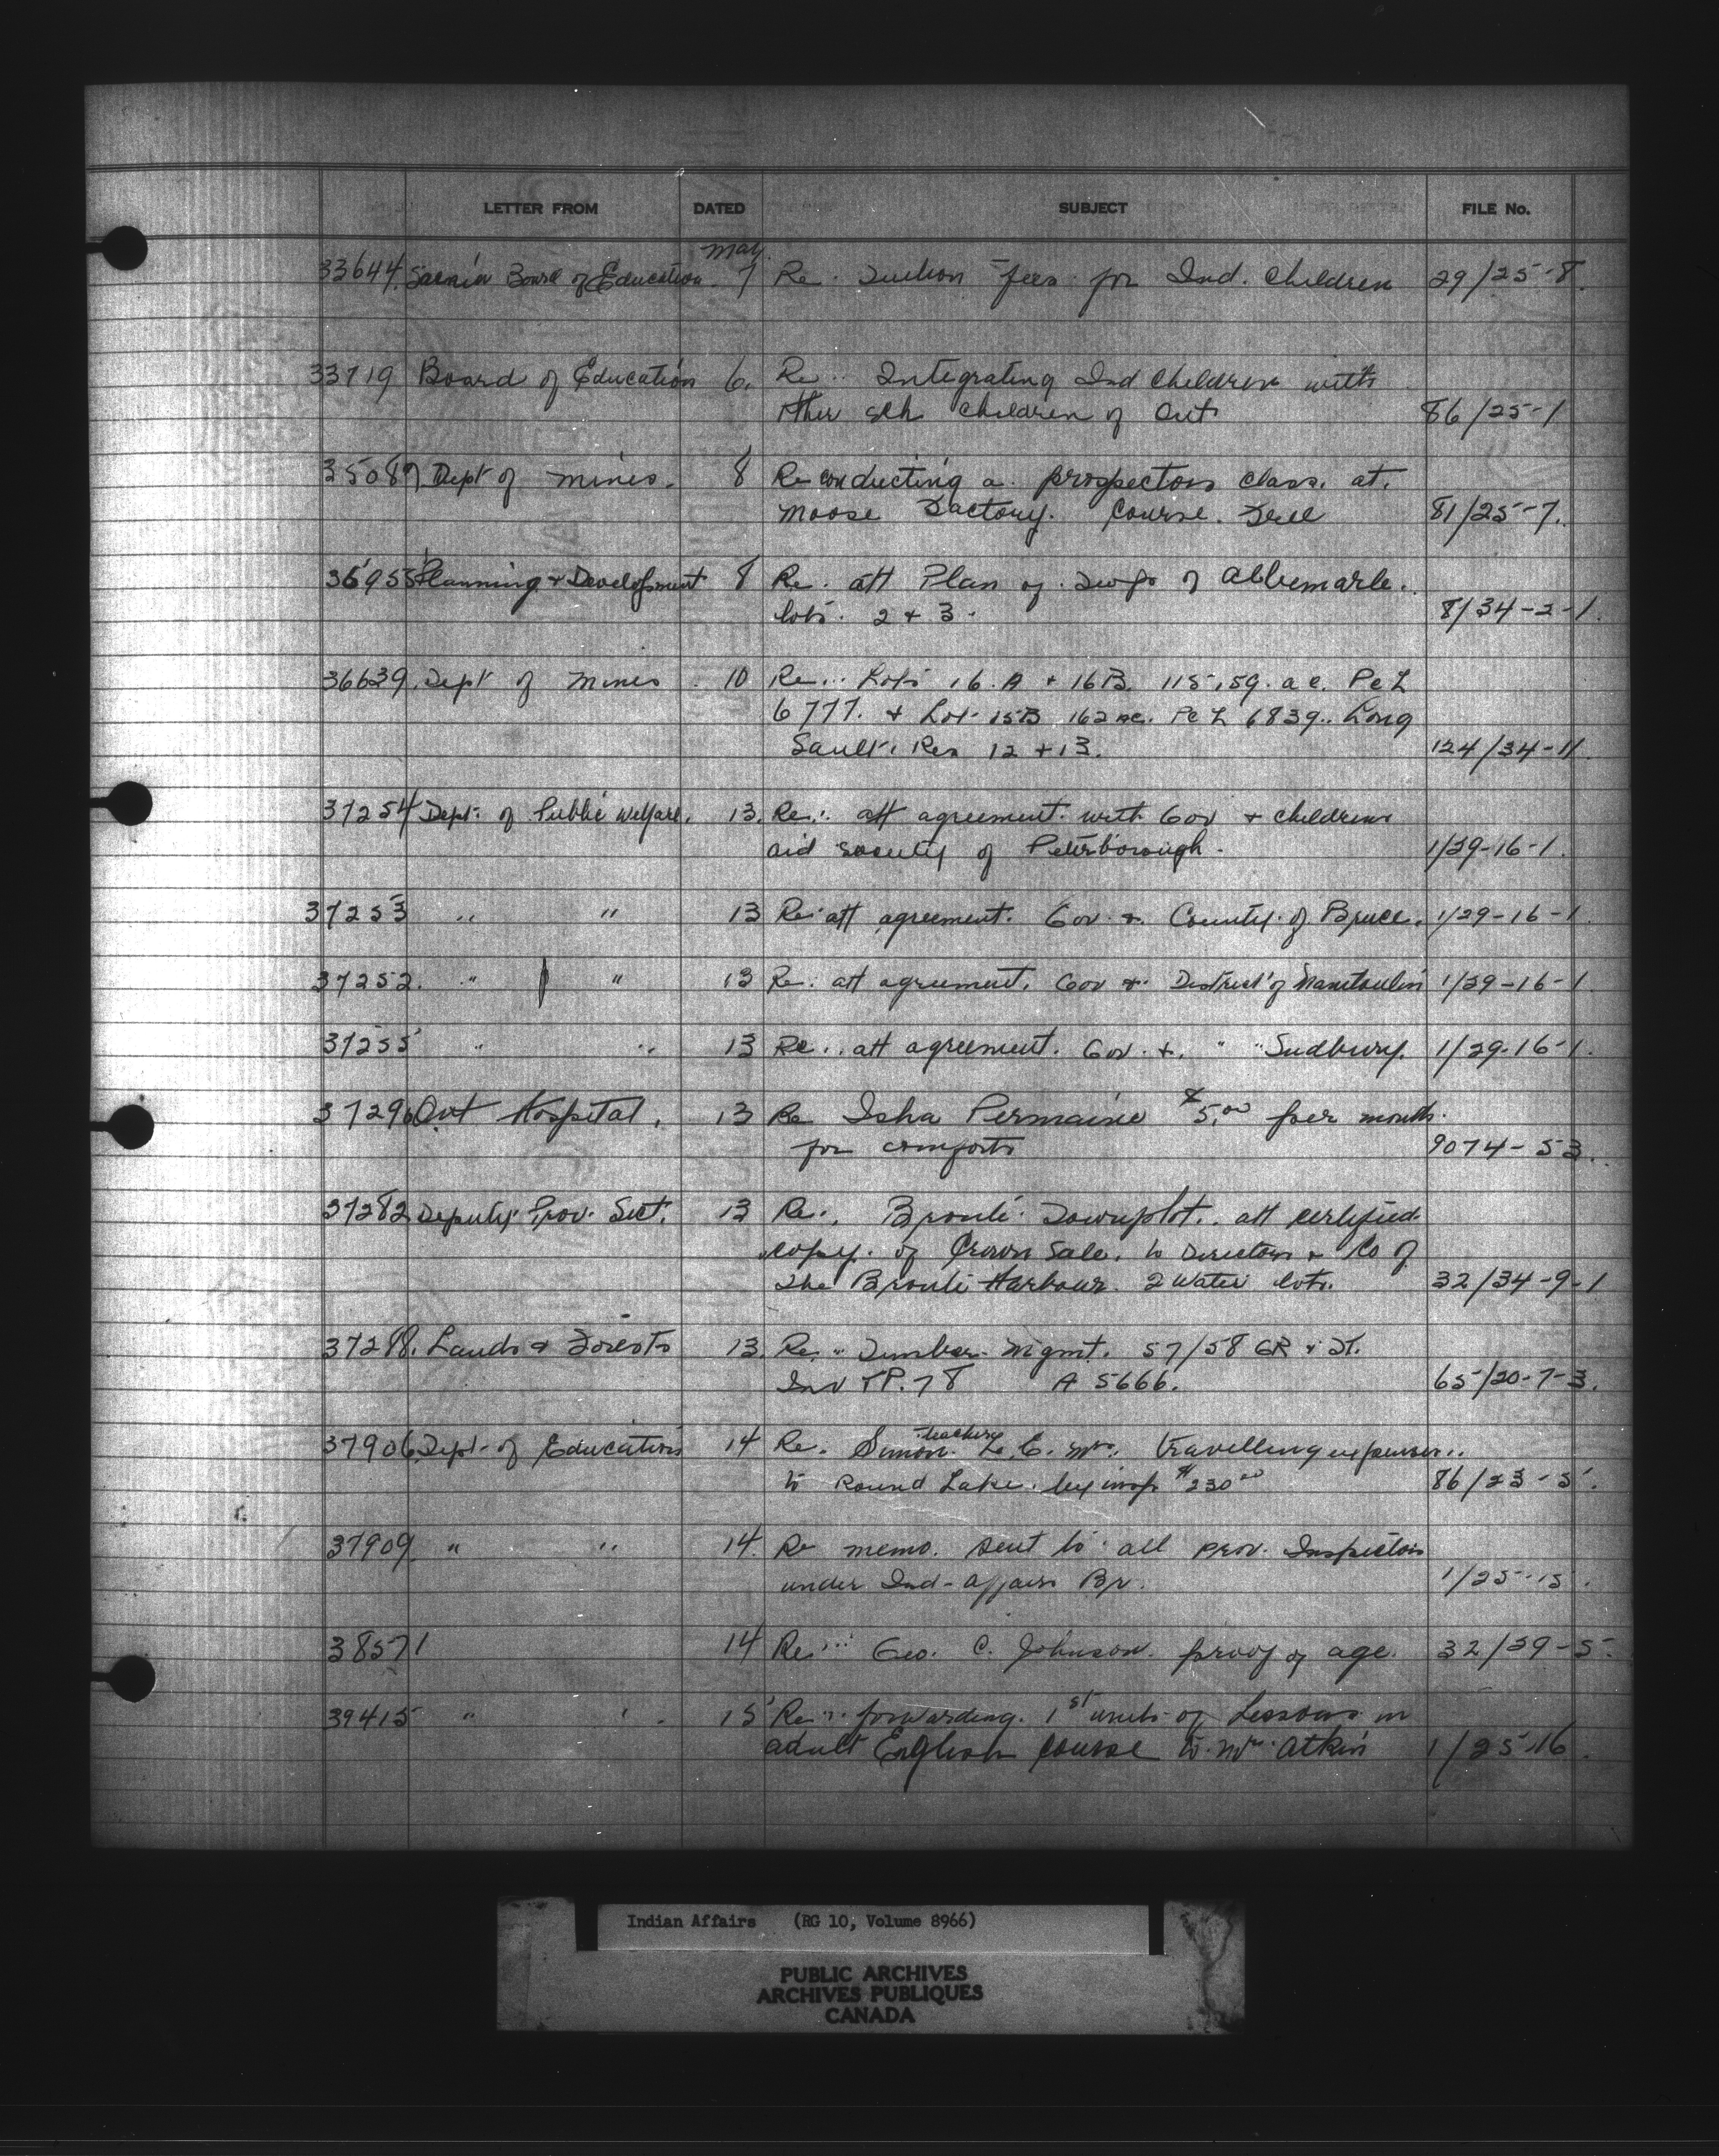 LETTER FROM DATED SUBJECT FILE No.
May
33644. Sarnia Board of Education. 7 Re. Tuition fees for Ind. Children 29/25-8.
33719 Board of Education 6. Re.. Integrating Ind Children with
other sch children of Ont 86/25-1
35087. Dept of Mines. 8 Re conducting a. prospectors class. at.
Moose Factory. Course. Free 81/25-7.
36955 Planning & Development 8 Re. att Plan of. Twp of Albemarle.
lots. 2 & 3. 8/34-2-1.
36639. Dept of Mines. 10 Re... Lots 16.A & 16B. 115.59. ac. Pcl
6777. & Lot 15B 162 ac. Pcl 6839.. Long
Sault. Res 12 & 13. 124/34-11.
37254 Dept. of Public Welfare. 13. Re.. att agreement. with Gov & childrens
aid society of Peterborough. 1/29-16-1.
37253 " " 13 Re. att agreement. Gov. &. County. of Bruce. 1/29-16-1.
37252. " " 13 Re. att agreement. Gov &. District of Manitoulin 1/29-16-1
37255 " " 13 Re.. att agreement. Gov. &. " " Sudbury. 1/29-16-1.
37296 Ont Hospital. 13 Re Isha Permaine $5.00 per month.
for comforts 9074-53.
37282 Deputy. Prov. Sect. 13 Re., Bronte Townplot.. att certified.
copy. of Crown Sale. to Directors & Co of
the Bronte Harbour. 2 Water lots. 32/34-9-1
37288. Lands & Forests 13. Re. " Timber. Mgmt. 57/58 GR & St.
Inv TP. 78 A 5666. 65/20-7-3.
37906. Dept. of Education 14 Re. Simon. teacher L. E. Mr. travelling expenses..
to Round Lake. by insp $230.00 86/23-5.
37909. " " 14. Re memo. sent to all prov. Inspectors
under Ind-affairs Br. 1/25-15.
38571 14 Re... Geo. C. Johnson. proof of age. 32/39-5.
39415 " 15 Re.. forwarding. 1st units of Lessons in
adult English course to. Mr. Atkin 1/25-16.
Indian Affairs (RG 10, Volume 8966)
PUBLIC ARCHIVES
ARCHIVES PUBLIQUES
CANADA